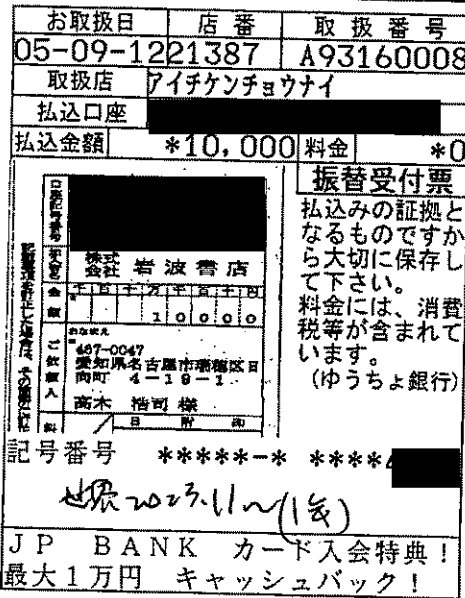 お取扱日 店番 取扱番号
05-09-12 21387 A93160008
取扱店 アイチケンチョウナイ
払込口座
払込金額 *10,000 料金 *0
振替受付票
払込みの証拠と
なるものですか
ら大切に保存し
て下さい。
料金には、消費
税等が含まれて
います。
(ゆうちょ銀行)
口座記号番号
加入者名 株式会社 岩波書店
金額 千百十万千百十円
10000
ご依頼人
おなまえ
467-0047
愛知県名古屋市瑞穂区日
向町 4-19-1
高木 浩司 様
料
日附印
記号番号 *****-* ****
世界2023.11〜(1年)
JP BANK カード入会特典!
最大1万円 キャッシュバック!